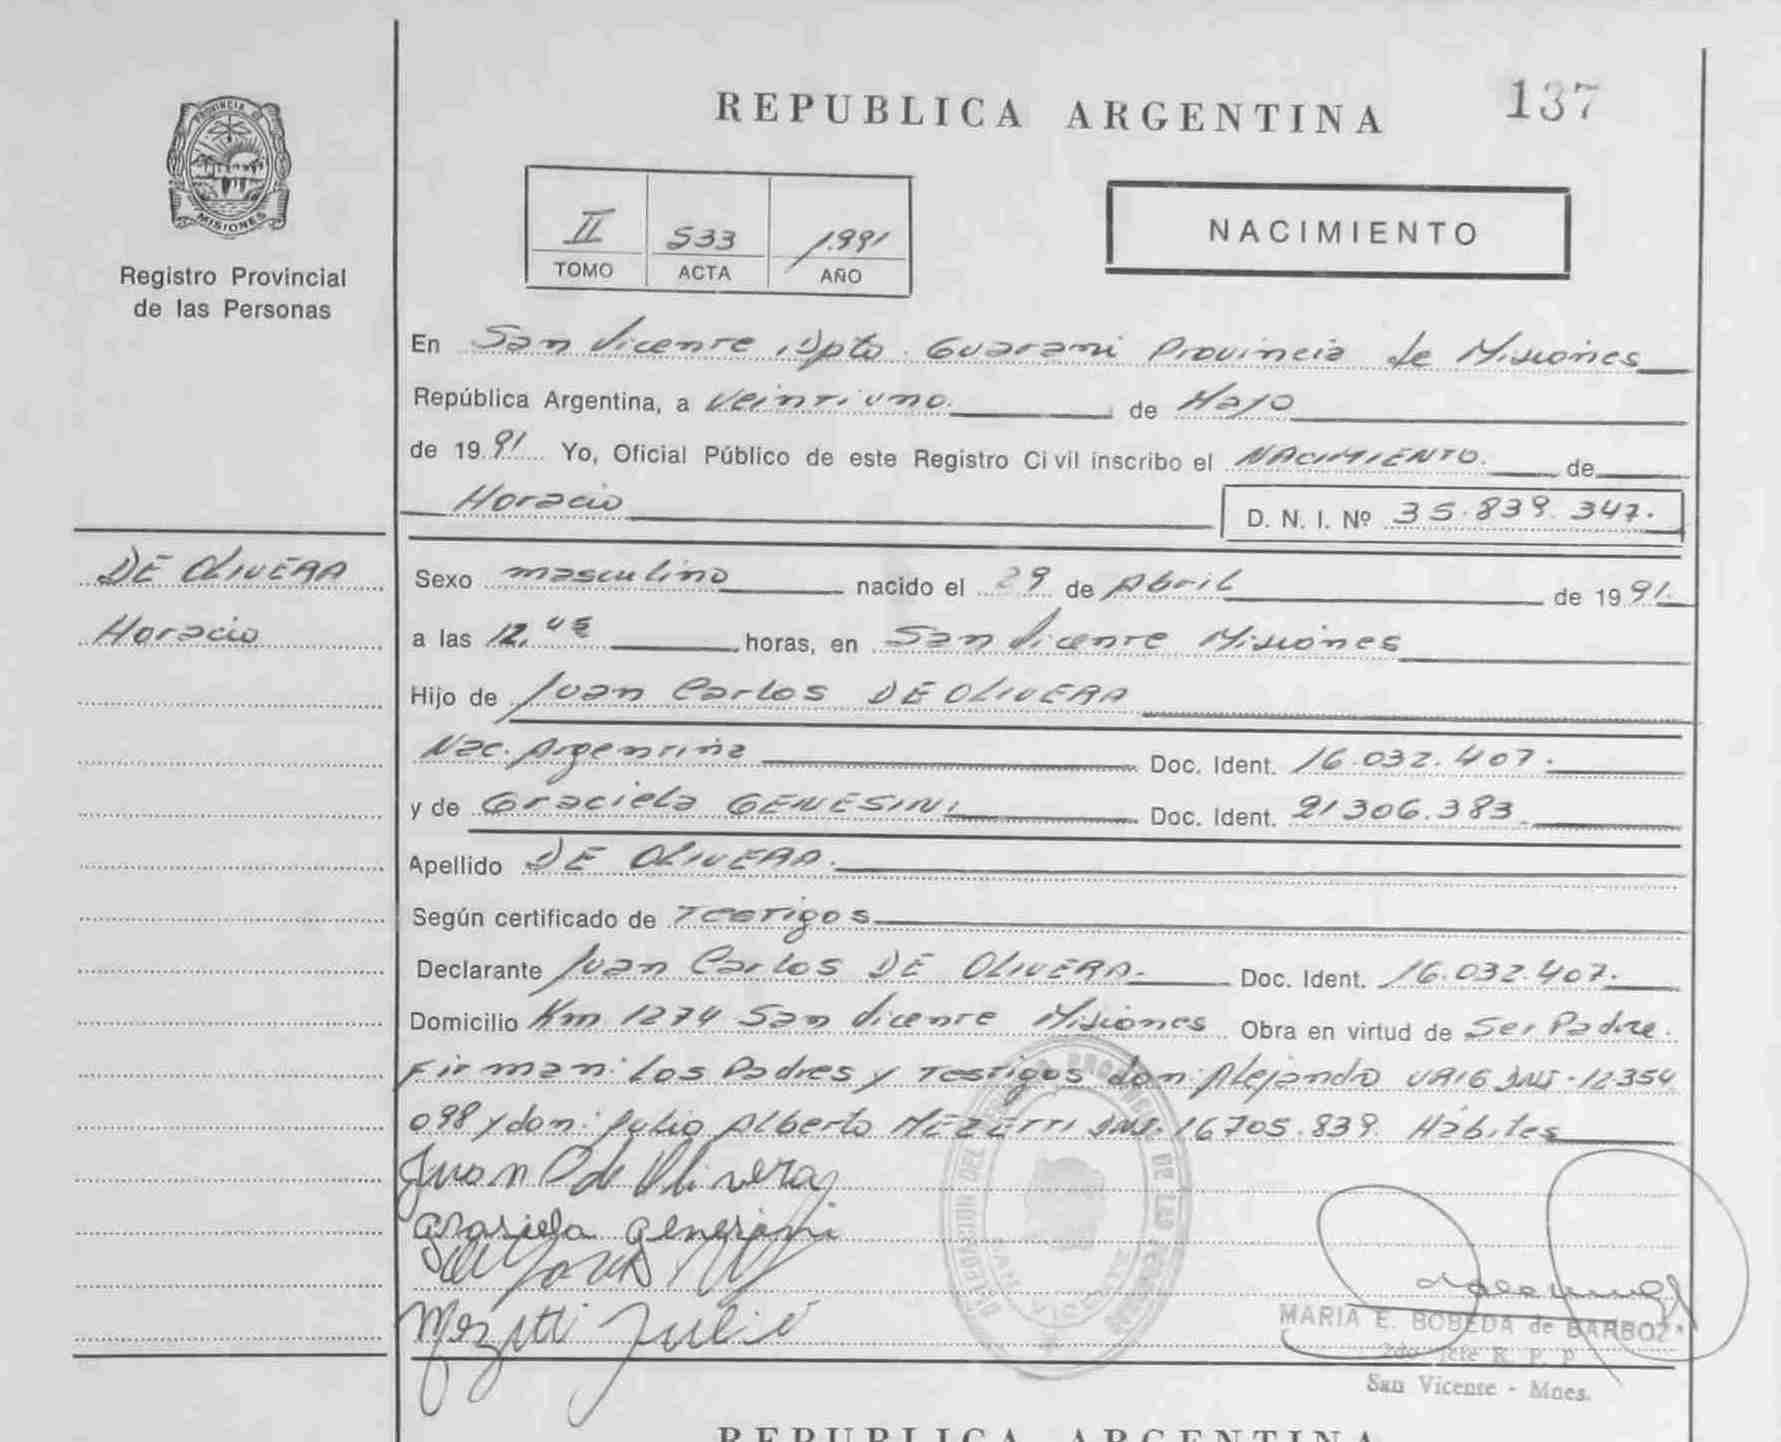 REPUBLICA ARGENTINA
137
PROVINCIA DE
MISIONES
Registro Provincial
de las Personas
II 533 1.991
TOMO ACTA AÑO
NACIMIENTO
En San Vicente, Dpto. Guarani Provincia de Misiones
República Argentina, a veintiuno. de Mayo
de 1991 Yo, Oficial Público de este Registro Civil inscribo el NACIMIENTO. de
Horacio
D. N. I. Nº 35.839.347.
DE OLIVERA
Horacio
Sexo masculino nacido el 29 de Abril de 1991.
a las 12,45 horas, en San Vicente Misiones
Hijo de Juan Carlos DE OLIVERA
Nac. Argentina Doc. Ident. 16.032.407.
y de Graciela GENESINI Doc. Ident. 21306.383.
Apellido DE OLIVERA.
Según certificado de Testigos
Declarante Juan Carlos DE OLIVERA. Doc. Ident. 16.032.407.
Domicilio Km 1274 San Vicente Misiones Obra en virtud de Ser Padre.
Firman: Los Padres y Testigos don: Alejandro DNI-12354
098 y don: Julio Alberto MEZETTI DNI. 16705.839. Hábiles
Juan C de Olivera
Grasiela Genesini
Mezetti Julio
MARIA E. BOBEDA de BARBOZA
2do Jefe R. P. P
San Vicente - Mnes.
REPUBLICA ARGENTINA